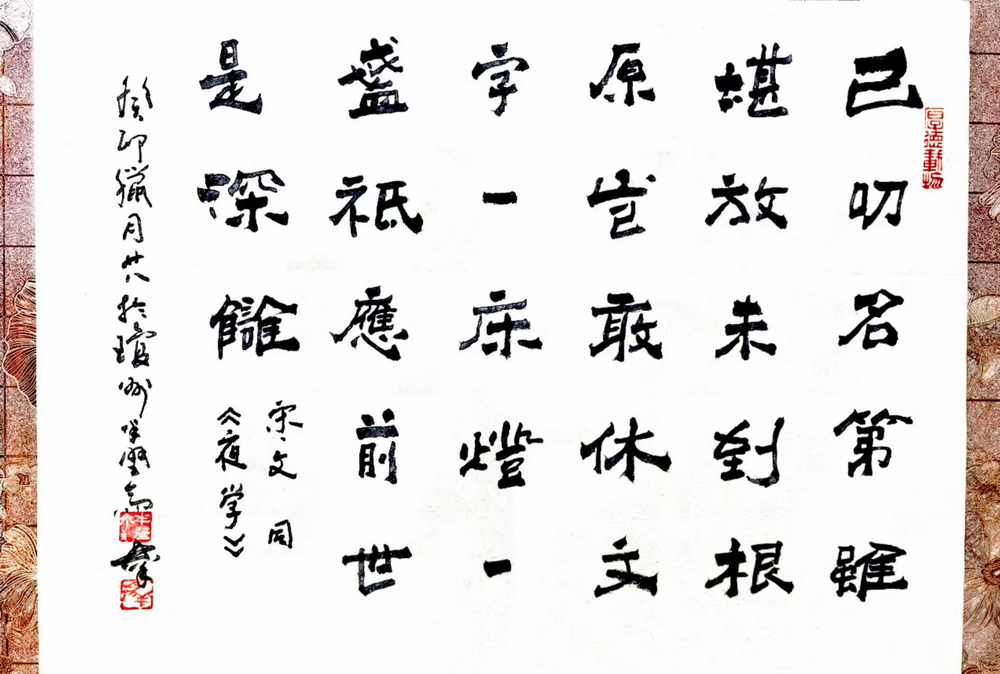 厚德載物
已叨名第雖
堪放未到根
原豈敢休文
字一床燈一
盞祇應前世
是深讎
宋·文同
《夜学》
癸卯獵月廿八於瓊州